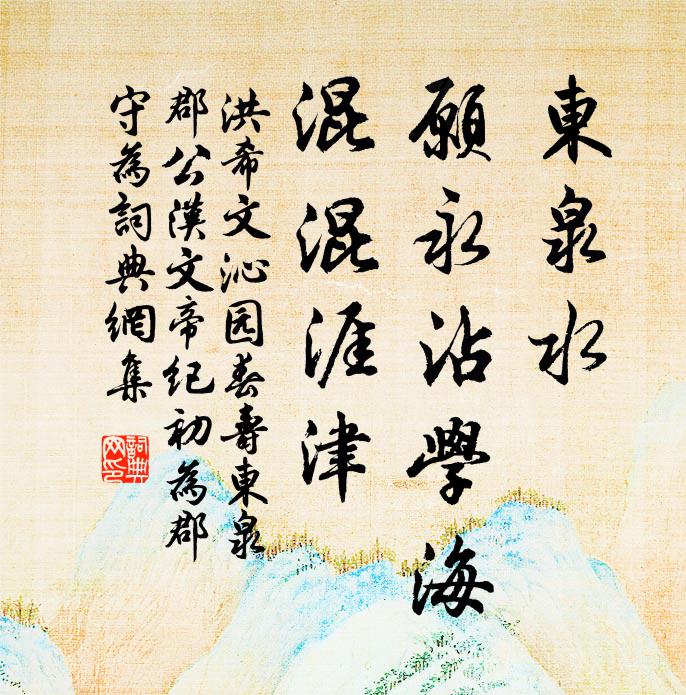 東泉水
願永沾學海
混混涯津
洪希文沁园春壽東泉
郡公漢文帝纪初為郡
守為詞典網集
詞典网印